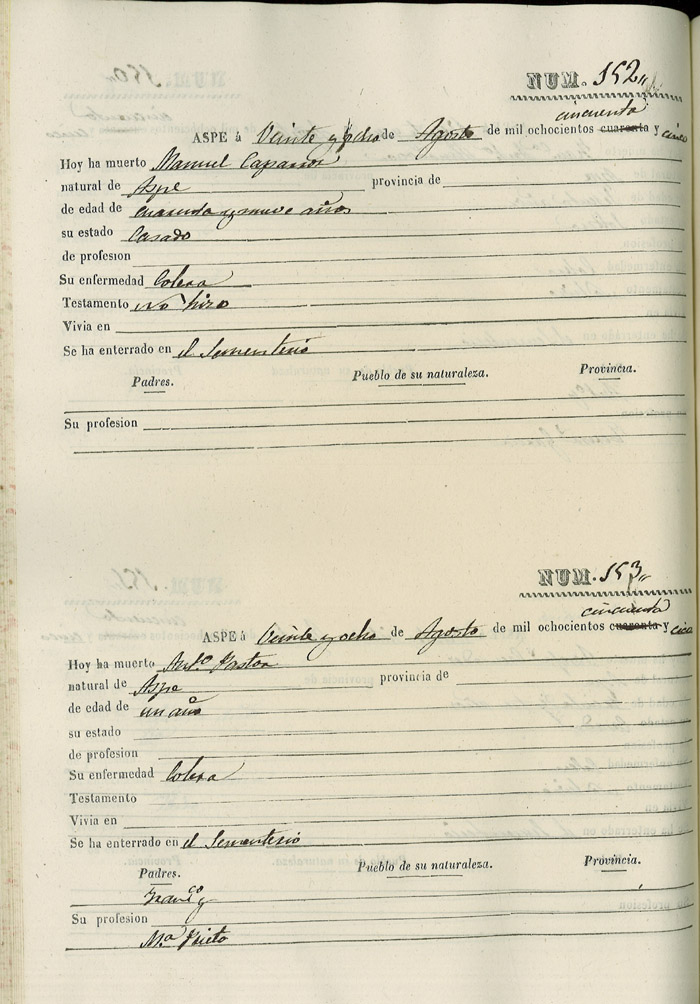 NUM. 152
cincuenta
ASPE á Veinte y ocho de Agosto de mil ochocientos cuaranta y cinco
Hoy ha muerto Manuel Caparros
natural de Aspe provincia de
de edad de cuarenta y nueve años
su estado Casado
de profesion
Su enfermedad Colera
Testamento No hizo
Vivia en
Se ha enterrado en el Sementerio
Padres. Pueblo de su naturaleza. Provincia.
Su profesion
NUM. 153
cincuenta
ASPE á Veinte y ocho de Agosto de mil ochocientos cuaranta y cinco
Hoy ha muerto Antº Pastor
natural de Aspe provincia de
de edad de un año
su estado
de profesion
Su enfermedad Colera
Testamento
Vivia en
Se ha enterrado en el Sementerio
Padres. Pueblo de su naturaleza. Provincia.
Francº y
Su profesion
Mª Prieto